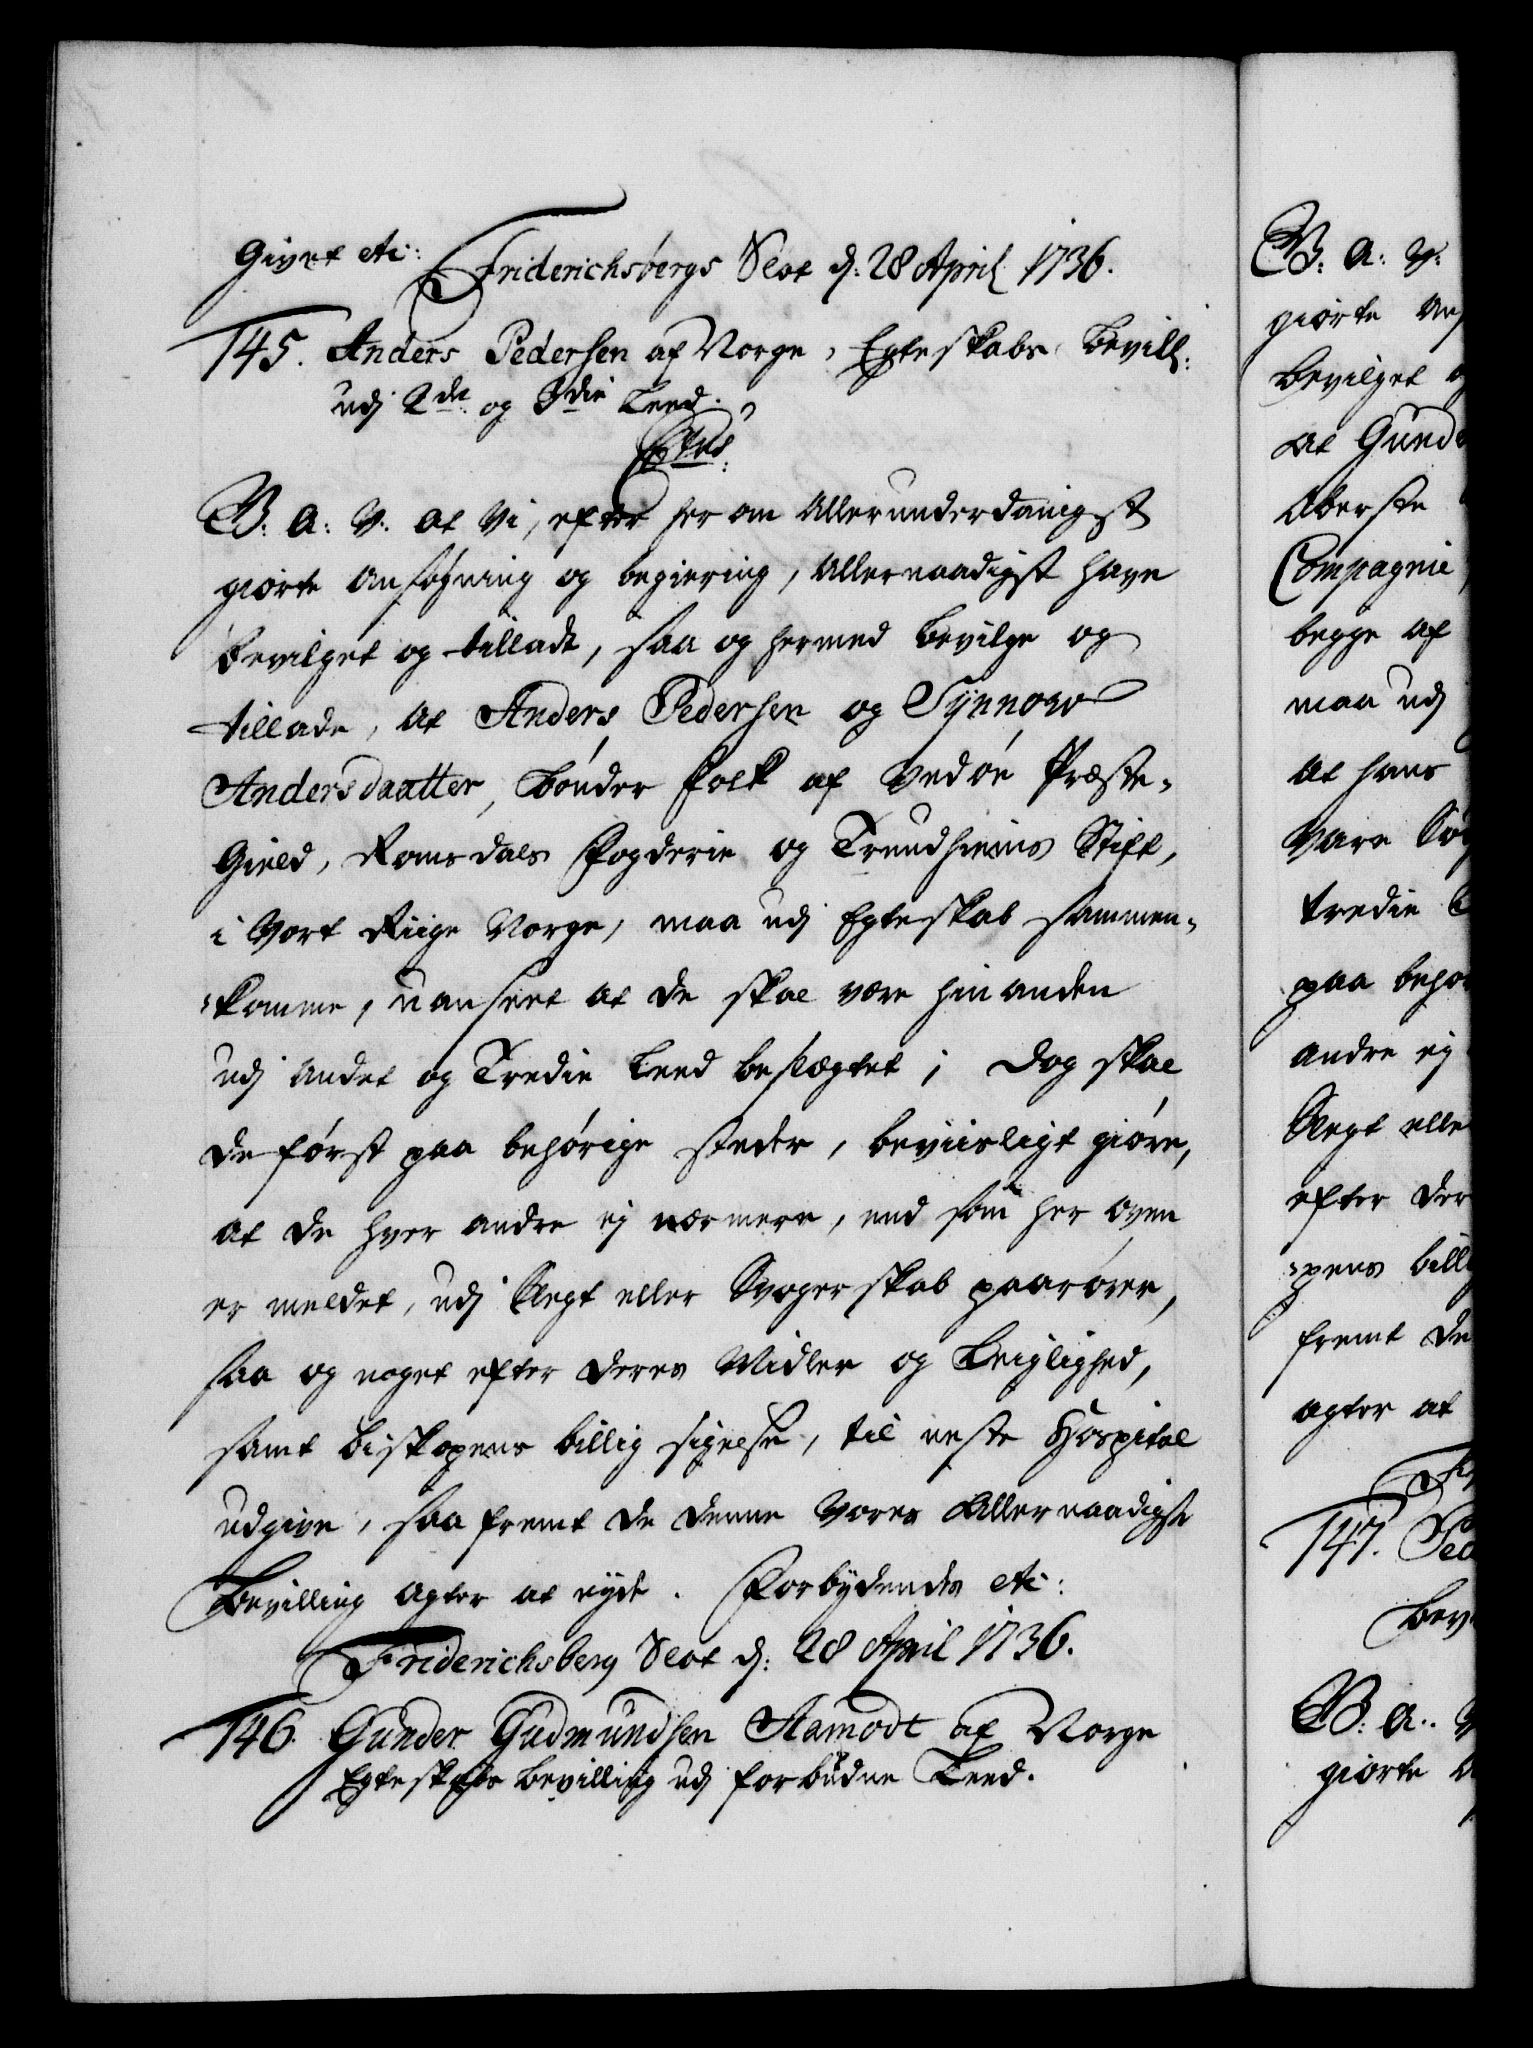 Givet etc:
Friderichsbergs Slot d: 28 April 1736.
145. Anders Pedersen af Norge, Egteskabs Bevill:
udj 2den og 3die Leed.
B: A: V: at Vi, efter her om Allerunderdanigst
giorte Ansøgning og begiering, Allernaadigst have
bevilget og tilladt, saa og hermed bevilge og
tillade, at Anders Pedersen og Synnow
Andersdaatter, bønder folk af Vedøe Præste-
Gield, Romsdals Fogderie og Trundhiems Stift,
i Vort Riige Norge, maa udj Egteskab sammen-
-komme, uanseet at de skal være hinanden
udj andet og Tredie Leed beslægtet; Dog skal
de først paa behørige steder, beviisligt giøre,
at de hver andre ej nærmere, end som her oven
er meldet, udj Slegt eller Svogerskab paarører,
saa og noget efter deres Midler og Leiglighed,
samt biskopens billig sigelse, til neste Hospital
udgive, saa fremt de denne Vores Allernaadigste
Bevilling agter at nyde. Forbydendes etc:
Friderichsberg Slot d: 28 April 1736.
146. Gunder Gudmundsen Aamodt af Norge
Egteskabs bevilling udj forbudne Leed.
B: A: V:
giorte Ans
bevilget og
at Gunde
Oberste
Compagnie
begge af
maa udj
at hans
være
tredie
paa behø
andre ej
Slegt elle
efter der
-pens bill
fremt de
agter at
147. Ped
Bev
B: A: V
giorte